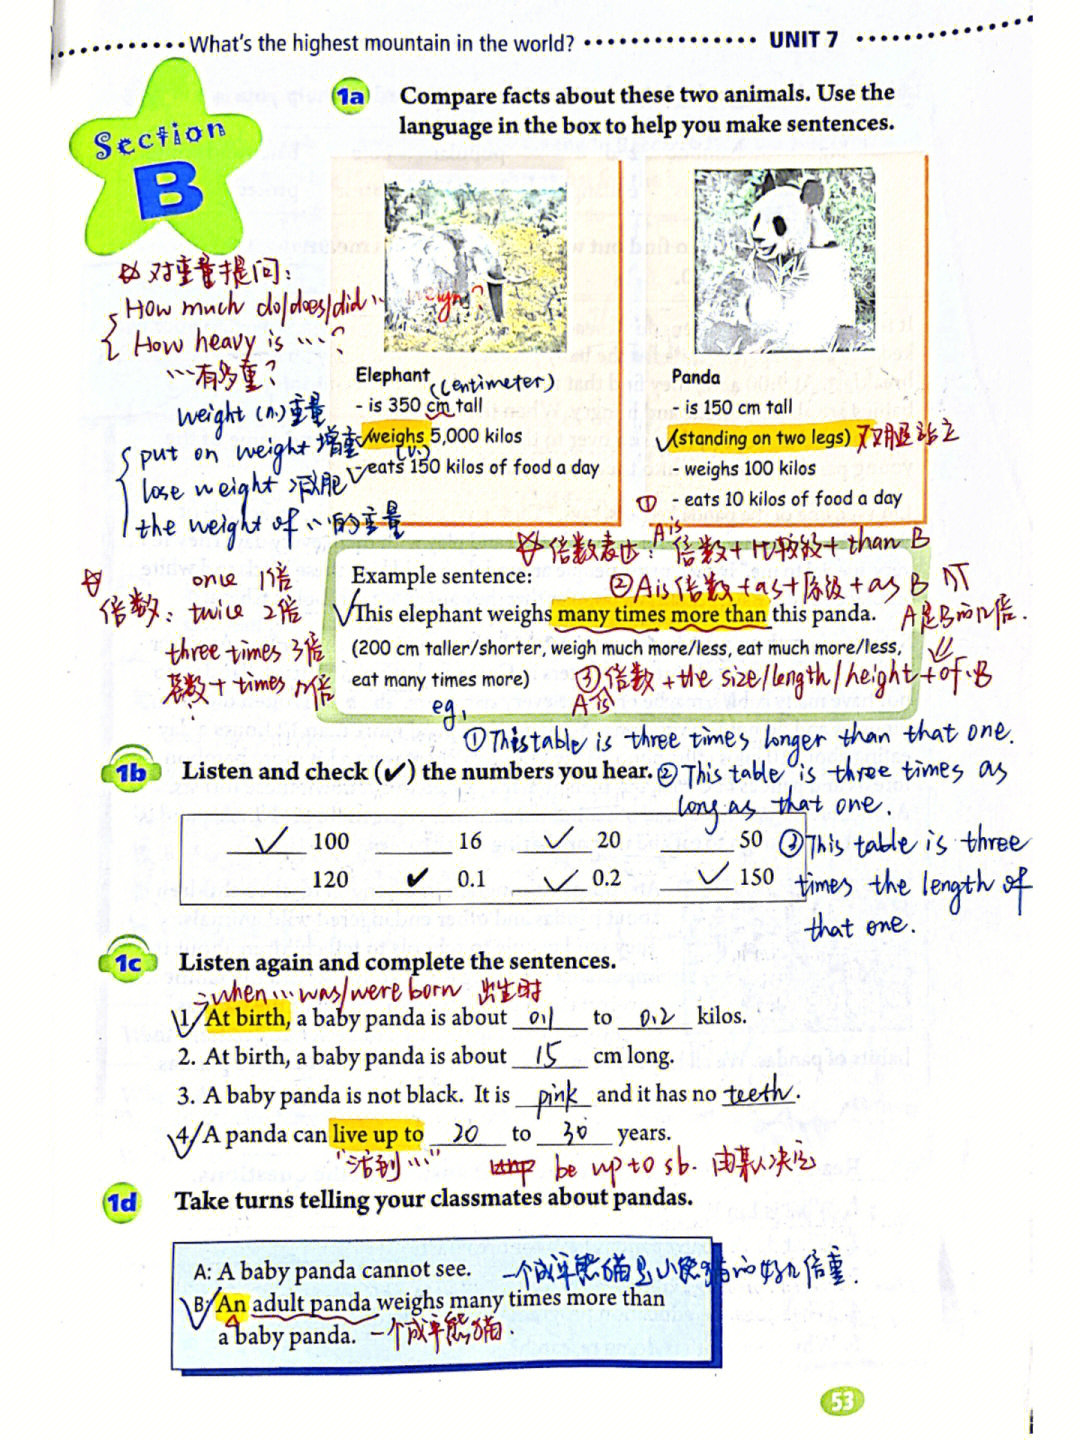 What's the highest mountain in the world?
UNIT 7
Section
B
1a
Compare facts about these two animals. Use the
language in the box to help you make sentences.
对重量提问:
How much do/does/did … weigh?
How heavy is …?
…有多重?
weight (n.) 重量
put on weight 增重
lose weight 减肥
the weight of …的重量
Elephant
(centimeter)
- is 350 cm tall
weighs 5,000 kilos
(v.)
- eats 150 kilos of food a day
Panda
- is 150 cm tall
(standing on two legs) 双腿站立
- weighs 100 kilos
- eats 10 kilos of food a day
倍数表达: ① A is 倍数+比较级+than B
② A is 倍数+as+原级+as B
A是B的n倍.
③ A is 倍数+the size/length/height+of B
倍数: once 1倍
twice 2倍
three times 3倍
基数+times n倍
Example sentence:
This elephant weighs many times more than this panda.
(200 cm taller/shorter, weigh much more/less, eat much more/less,
eat many times more)
eg,
① This table is three times longer than that one.
② This table is three times as
long as that one.
③ This table is three
times the length of
that one.
1b
Listen and check (✔) the numbers you hear.
✓ 100 ____ 16 ✓ 20 ____ 50
____ 120 ✔ 0.1 ✓ 0.2 ✓ 150
1c
Listen again and complete the sentences.
when … was/were born 出生时
1. At birth, a baby panda is about 0.1 to 0.2 kilos.
2. At birth, a baby panda is about 15 cm long.
3. A baby panda is not black. It is pink and it has no teeth.
4. A panda can live up to 20 to 30 years.
"活到…"
be up to sb. 由某人决定
1d
Take turns telling your classmates about pandas.
A: A baby panda cannot see.
一个成年熊猫是小熊猫的好几倍重.
B: An adult panda weighs many times more than
a baby panda.
一个成年熊猫.
53